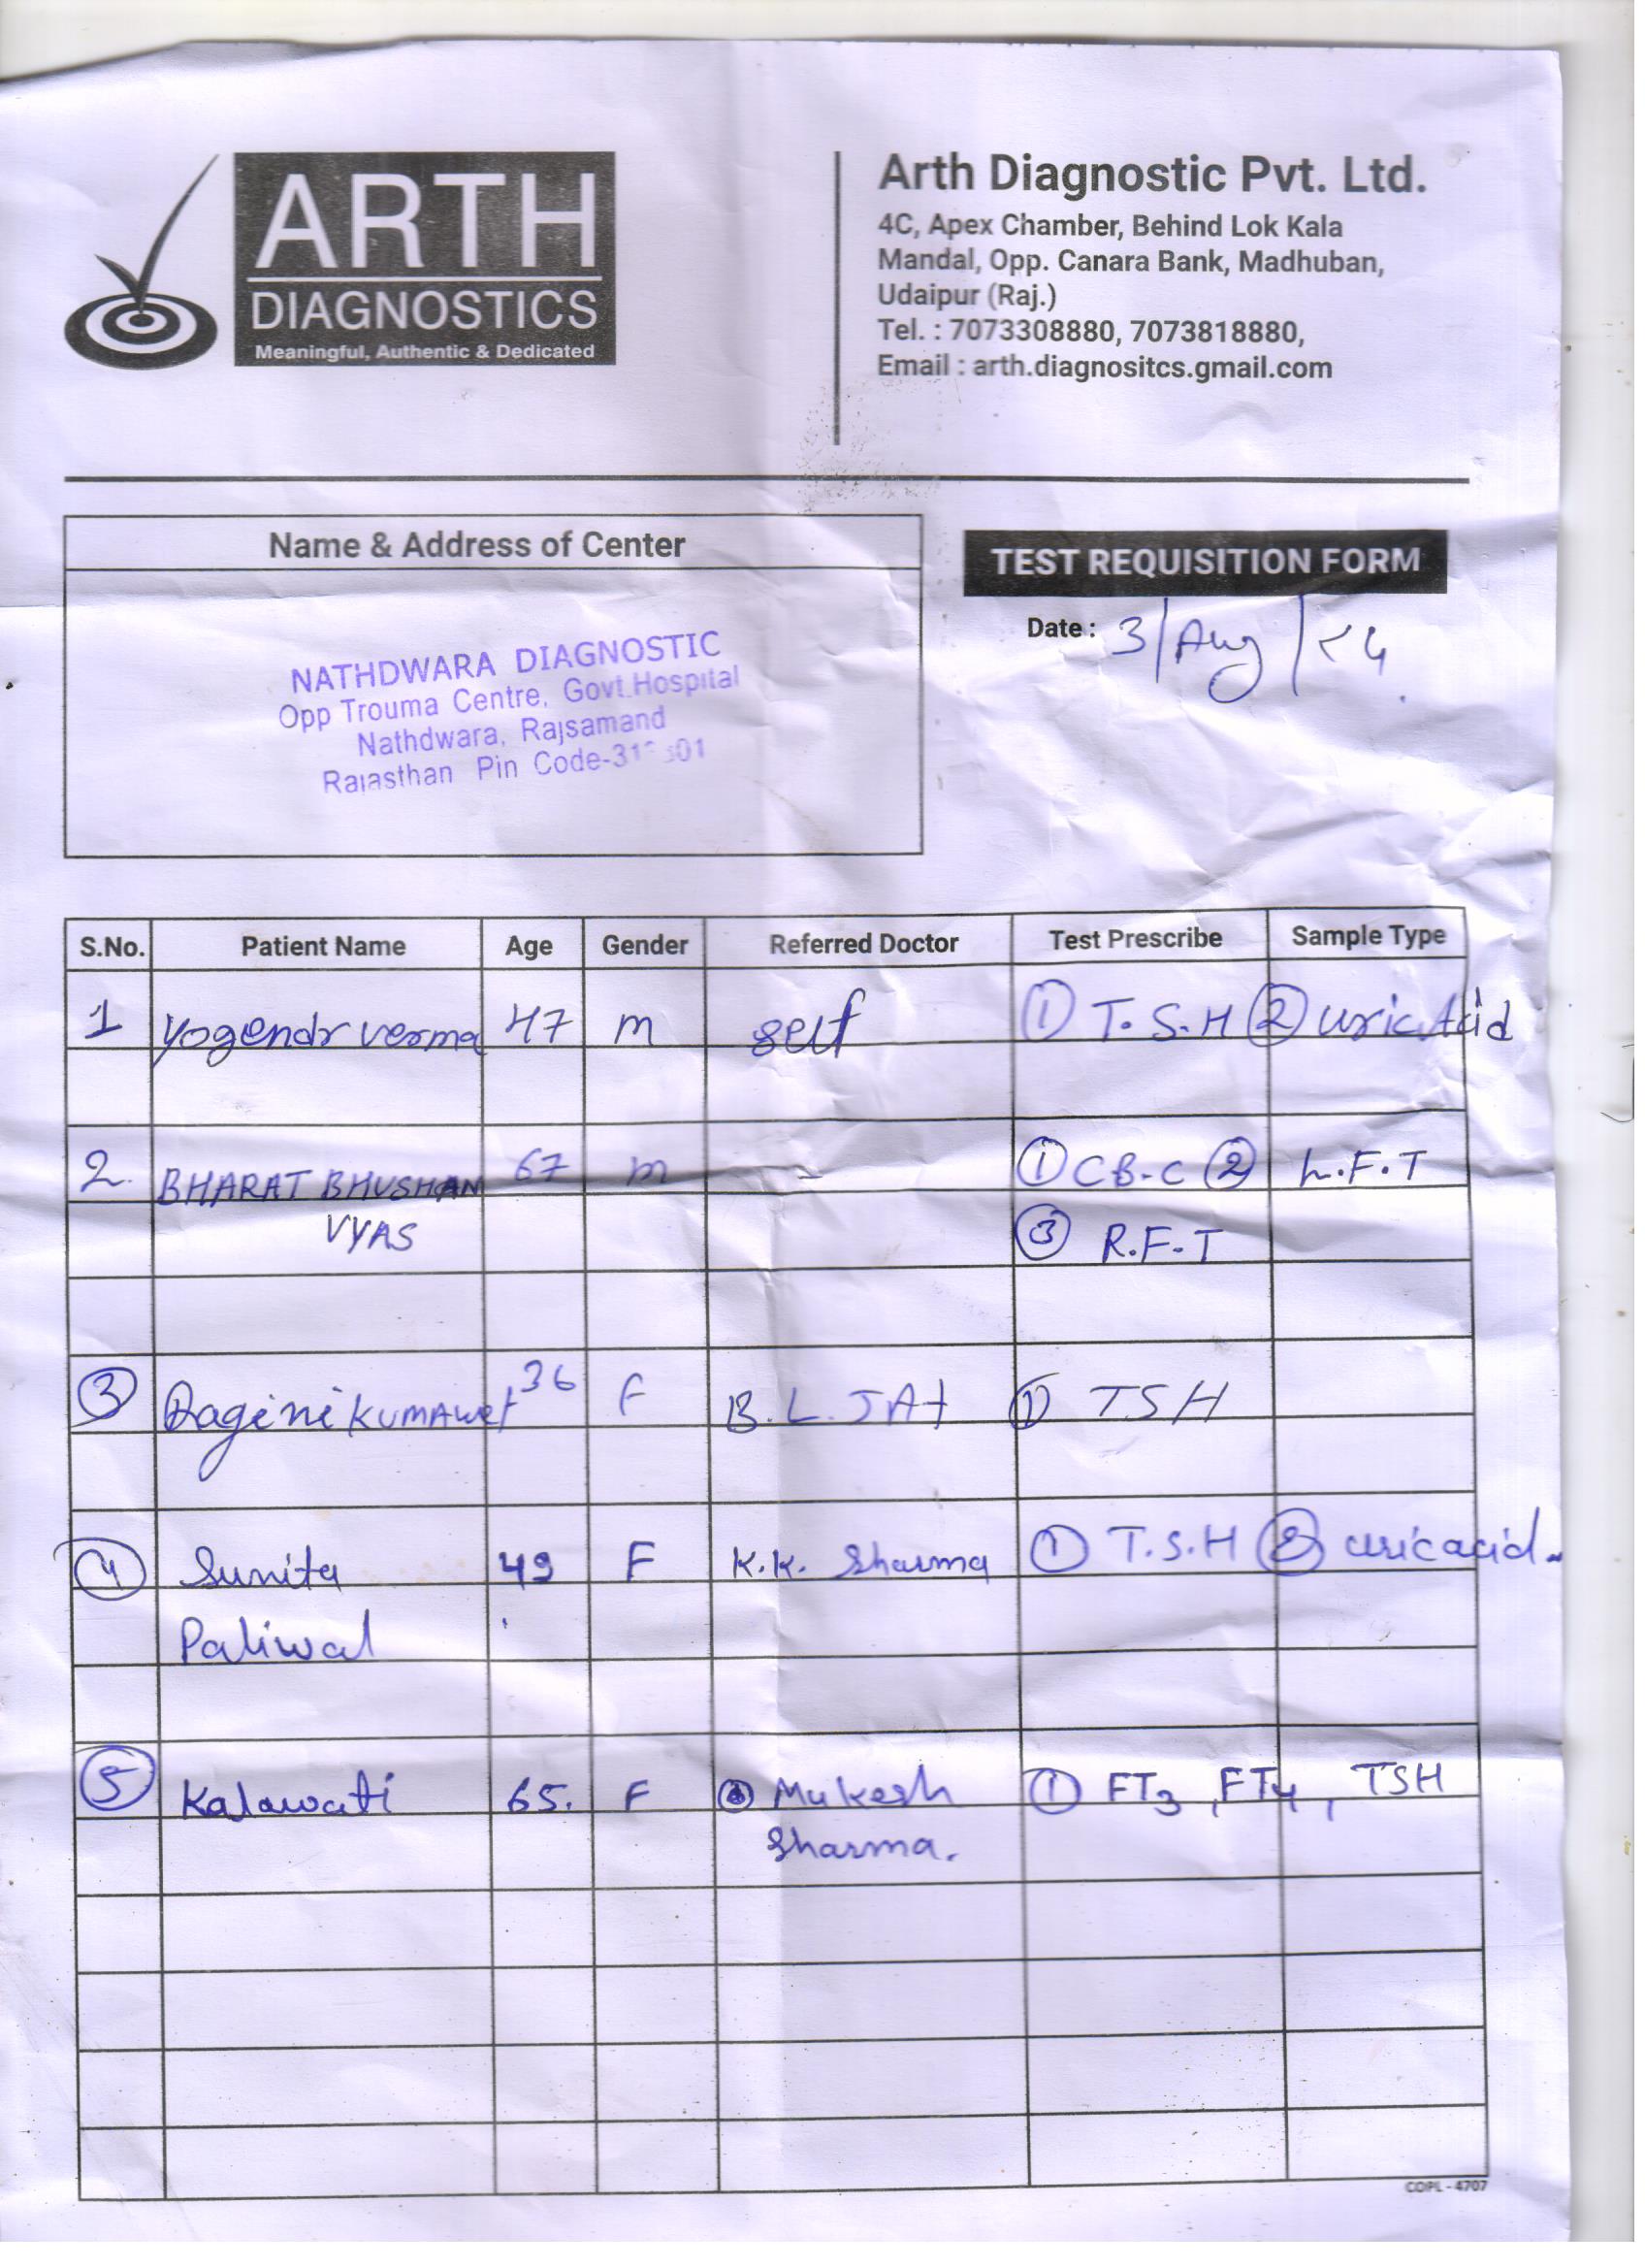 ARTH
DIAGNOSTICS
Meaningful, Authentic & Dedicated
Arth Diagnostic Pvt. Ltd.
4C, Apex Chamber, Behind Lok Kala
Mandal, Opp. Canara Bank, Madhuban,
Udaipur (Raj.)
Tel. : 7073308880, 7073818880,
Email : arth.diagnositcs.gmail.com
Name & Address of Center
TEST REQUISITION FORM
Date : 3/Aug/24
NATHDWARA DIAGNOSTIC
Opp Trouma Centre, Govt.Hospital
Nathdwara, Rajsamand
Rajasthan Pin Code-
S.No. Patient Name Age Gender Referred Doctor Test Prescribe Sample Type
1 Yogendr verma 47 m self ① T.S.H ② uric Acid
2. BHARAT BHUSHAN 67 m - ① CB-C ② L.F.T
VYAS ③ R.F.T
③ Ragini KUMAWet 36 F B.L. JAt ① TSH
④ Sunita 49 F K.K. Sharma ① T.S.H ② uric acid.
Paliwal
⑤ Kalawati 65. F Mukesh ① FT3, FT4, TSH
Sharma.
COPL - 4707